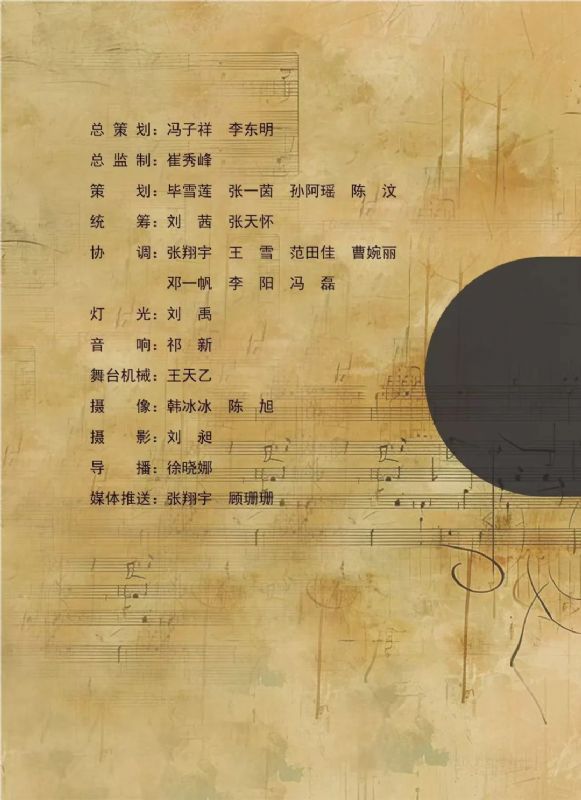 总策划：冯子祥 李东明
总监制：崔秀峰
策划：毕雪莲 张一茵 孙阿瑶 陈汶
统筹：刘茜 张天怀
协调：张翔宇 王雪 范田佳 曹婉丽
邓一帆 李阳 冯磊
灯光：刘禹
音响：祁新
舞台机械：王天乙
摄像：韩冰冰 陈旭
摄影：刘昶
导播：徐晓娜
媒体推送：张翔宇 顾珊珊